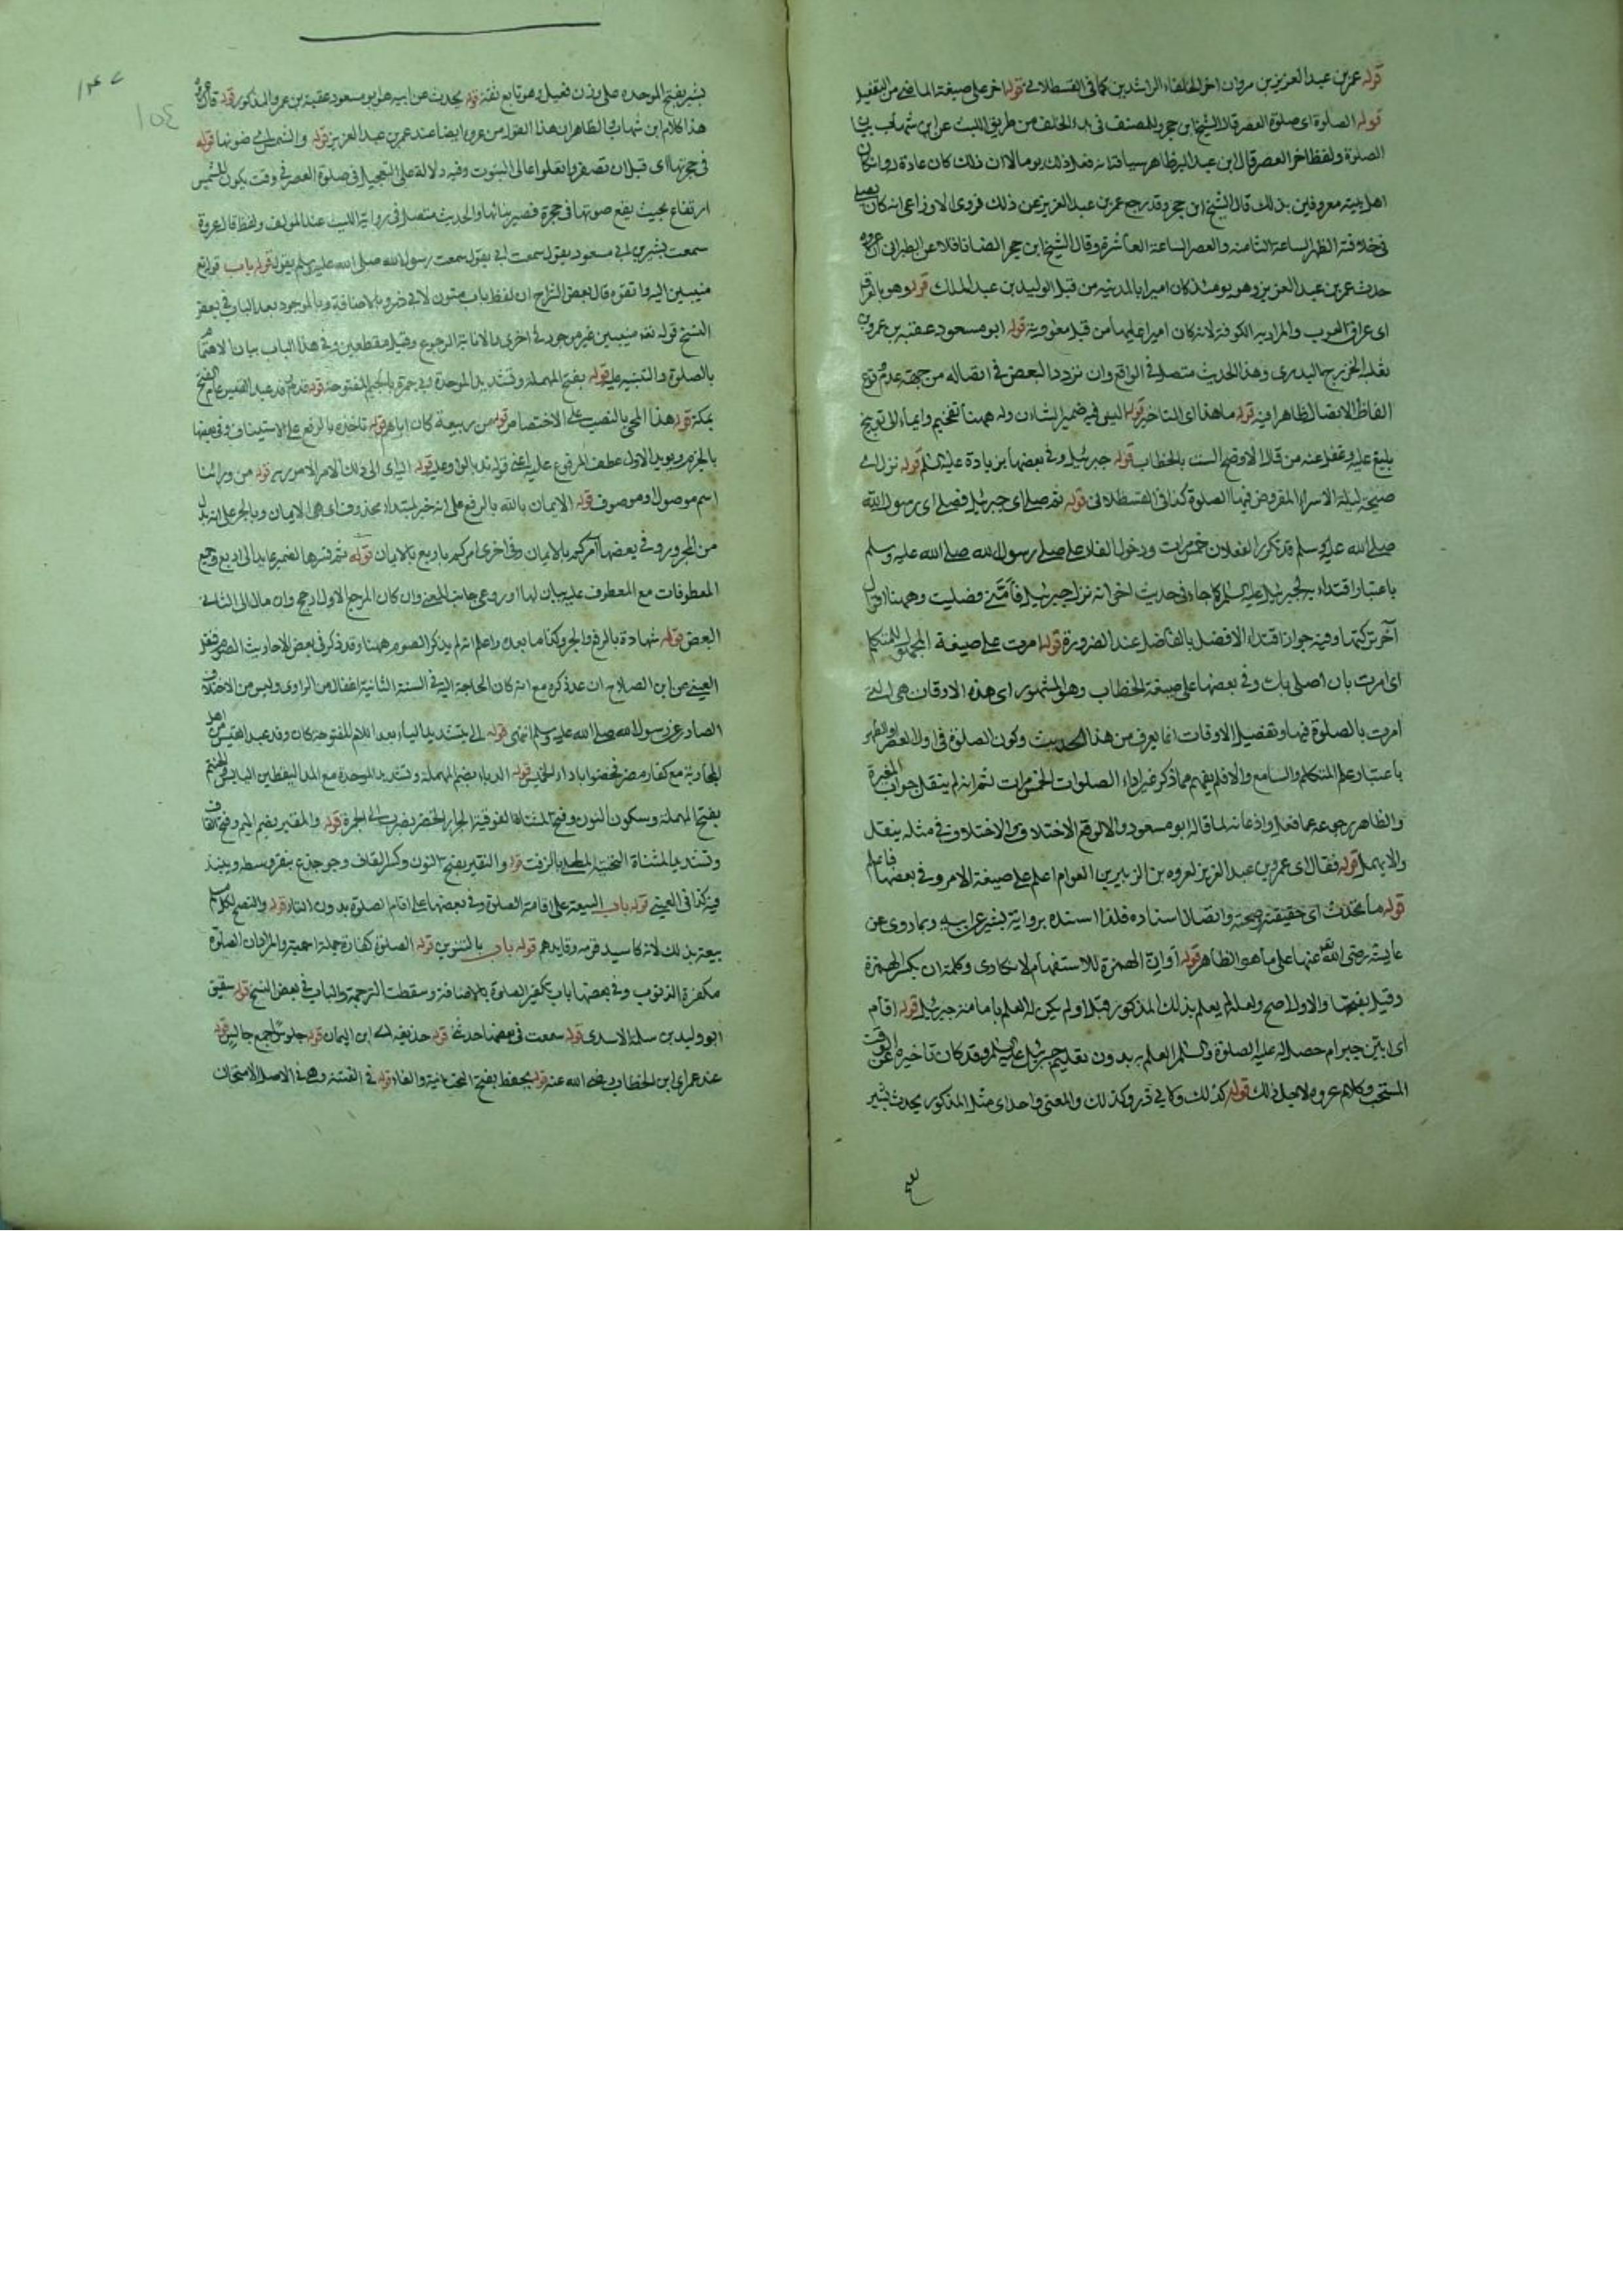 قوله عمر بن عبد العزيز بن مروان اخر الخلفاء الراشدين كما في القسطلاني قوله اخر على صيغة الماضي من التفعيل
قوله الصلوة اى صلوة العصر قال الشيخ ابن حجر وللمصنف في بدء الخلق من طريق الليث عن ابن شهاب بيان
الصلوة ولفظ اخر العصر قال ابن عبد البر ظاهر سياقته انه فعل ذلك يوما لا ان ذلك كان عادة له وان كان
اهل بيته معروفين بذلك قال الشيخ ابن حجر وقد رجع عمر بن عبد العزيز عن ذلك فروى الاوزاعى انه كان يصلى
في خلافته الظهر الساعة الثامنة والعصر الساعة العاشرة وقال الشيخ ابن حجر ايضا ناقلا عن الطبرانى ان عروة
حدث عمر بن عبد العزيز وهو يومئذ كان اميرا بالمدينة من قبل الوليد بن عبد الملك قوله وهو بالعراق
اى عراق العرب والمراد به الكوفة لانه كان اميرا عليها من قبل معوية قوله ابو مسعود عقبة بن عمرو بن
ثعلبة الخزرجى البدرى وهذا الحديث متصل في الواقع وان تردد البعض في اتصاله من جهة عدم وقوع
الفاظ الاتصال ظاهرا فيه قوله ما هذا اى التاخير قوله اليس فيه ضمير الشان وله ههنا تفخيم وايماء الى توبيخ
بليغ عليه وغفل عنه من قال الاوضح الست بالخطاب قوله جبرئيل وفي بعضها بزيادة عليه السلم قوله نزل اى
صبيحة ليلة الاسراء المفروض فيها الصلوة كذا في القسطلانى قوله ثم صلى اى جبرئيل فصلى اى رسول الله
صلى الله عليه وسلم قد تكرر الفعلان خمس مرات ودخول الفاء على صلى رسول الله صلى الله عليه وسلم
باعتبار اقتداء بجبرئيل عليه السلم كما جاء في حديث اخر انه نزل جبرئيل فأمّنى فصليت وههنا اقوال
آخر تركتها وفيه جواز اقتداء الافضل بالفاضل عند الضرورة قوله امرت على صيغة المجهول للمتكلم
اى امرت بان اصلى بك وفي بعضها على صيغة الخطاب وهو المشهور اى هذه الاوقات هى التى
امرت بالصلوة فيها وتفصيل الاوقات انما يعرف من هذا الحديث وكون الصلوة في اول العصر او الظهر
باعتبار علم المتكلم والسامع والا فلم يفهم مما ذكر غير اداء الصلوات الخمس مرات ثم انه لم ينقل جواب المغيرة
والظاهر رجوعه عما فعل واذعانه لما قاله ابو مسعود والا لوقع الاختلاف وى الاختلاف في مثله ينقل
والا يهمل قوله فقال اى عمر بن عبد العزيز لعروة بن الزبير بن العوام اعلم على صيغة الامر وفي بعضها فاعلم
قوله ما تحدث اى حقيقته وصحته واتصال اسناده فلذا اسنده برواية بشير عن ابيه وبما روى عن
عايشة رضى الله عنها على ما هو الظاهر قوله أوانّ الهمزة للاستفهام لانكارى وكلمة ان بكسر الهمزة
وقيل بفتحها والاول اصح ولعله لم يعلم بذلك المذكور قبل او لم يكن له العلم بامامته جبرئيل قوله اقام
اى ابيّن جبر ام حصل له عليه الصلوة والسلم العلم به بدون تعليم جبرئيل عليه السلم وقد كان تاخيره عن الوقت
المستحب وكلام عروة لاجل ذلك قوله كذلك وكا في ذر وكذلك والمعنى واحد اى مثل المذكور يحدث بشير
١٥٤
بشير بفتح الموحدة على وزن فعيل وهو تابع ثقة قوله يحدث عن ابيه هو ابو مسعود عقبة بن عمرو المذكور قوله قال عروة
هذا كلام ابن شهاب والظاهر ان هذا القول من عروة ايضا عند عمر بن عبد العزيز قوله والشمس اى ضوئها قوله
في حجرتها اى قبل ان تصفر وتعلوا عالى البيوت وفيه دلالة على التعجيل في صلوة العصر في وقت يكون للشمس
ارتفاع بحيث يقع ضوئها في حجرة قصير بنائها والحديث متصل في رواية الليث عند المولف ولفظ قال عروة
سمعت بشير بن ابى مسعود يقول سمعت ابى يقول سمعت رسول الله صلى الله عليه وسلم يقول قوله باب قوله تع
منيبين اليه واتقوه قال بعض الشراح ان لفظ باب منون لابى ذر وبالاضافة وبالموجود بعد الباب في بعض
النسخ قوله نعه منيبين غير موجود في اخرى والانابة الرجوع وقيل منقطعين وفي هذا الباب بيان لاهتمام
بالصلوة والتنبيه عليه قوله بفتح المهملة وتشديد الموحدة ابى جمرة بالجيم المفتوحة قوله قدم وفد عبد القيس عام الفتح
بمكة قوله هذا الحى بالنصب على الاختصاص قوله من ربيعة كان اباهم قوله ناخذه بالرفع على الاستيناف وفي بعضها
بالجزم ويويد الاول عطف المرفوع عليه اعنى قوله ندعو بالواو عليه قوله اليه اى الى ذلك الامر الامور به قوله من ورائنا
اسم موصول وموصوف قوله الايمان بالله بالرفع على انه خبر لمبتداء محذوف اى هى الايمان وبالجر على انه بدل
من المجرور وفي بعضها آمركم بالايمان وفي اخرى امركم باربع بالايمان قوله ثم فسرها الضمير عايد الى اربع وجميع
المعطوفات مع المعطوف عليه بيان لها او روعى جانب المعنى وان كان المرجح الاول ارجح وان مال الى الثانى
البعض قوله شهادة بالرفع والجر وكذا ما بعده واعلم انه لم يذكر الصوم ههنا وقد ذكر في بعض الاحاديث الصوم فنقل
العينى عن ابن الصلاح ان عدم ذكره مع انه كان الحاجة اليه في السنة الثانية اغفال من الراوى وليس من الاختلاف
الصادر عن رسول الله صلى الله عليه وسلم انتهى قوله الى بتشديد الياء بعد اللام المفتوحة كان وفد عبد القيس من اهل
المحاربة مع كفار مضر فخصوا باداء الخمس قوله الدباء بضم المهملة وتشديد الموحدة مع المد اليقطين اليابس قوله الحنتم
بفتح المهملة وسكون النون وفتح المثناة الفوقية الجرار الخضر يضرب الى الحمرة قوله والمقير بضم الميم وفتح القاف
وتشديد المثناة التحتية المطلى بالزفت قوله والنقير بفتح النون وكسر القاف وهو جذع ينقر وسطه وينبذ
فيه كذا في العينى قوله باب البيعة على اقامة الصلوة وفي بعضها على اقام الصلوة بدون التاء قوله والنصح لكل مسلم
بيعته بذلك لانه كا سيد قومه وقايدهم قوله باب بالتنوين قوله الصلوة كفارة جملة اسمية والمراد ان الصلوة
مكفرة الذنوب وفي بعضها باب تكفير الصلوة بالاضافة وسقطت الترجمة والباب في بعض النسخ قوله شقيق
ابو وليد بن سلمة الاسدى قوله سمعت في بعضها حدثنى قوله حذيفة اى ابن اليمان قوله جلوسا جمع جالس قوله
عند عمر اى ابن الخطاب رضى الله عنه قوله يحفظ بفتح التحتانية والفاء قوله في الفتنة وهى في الاصل الامتحان